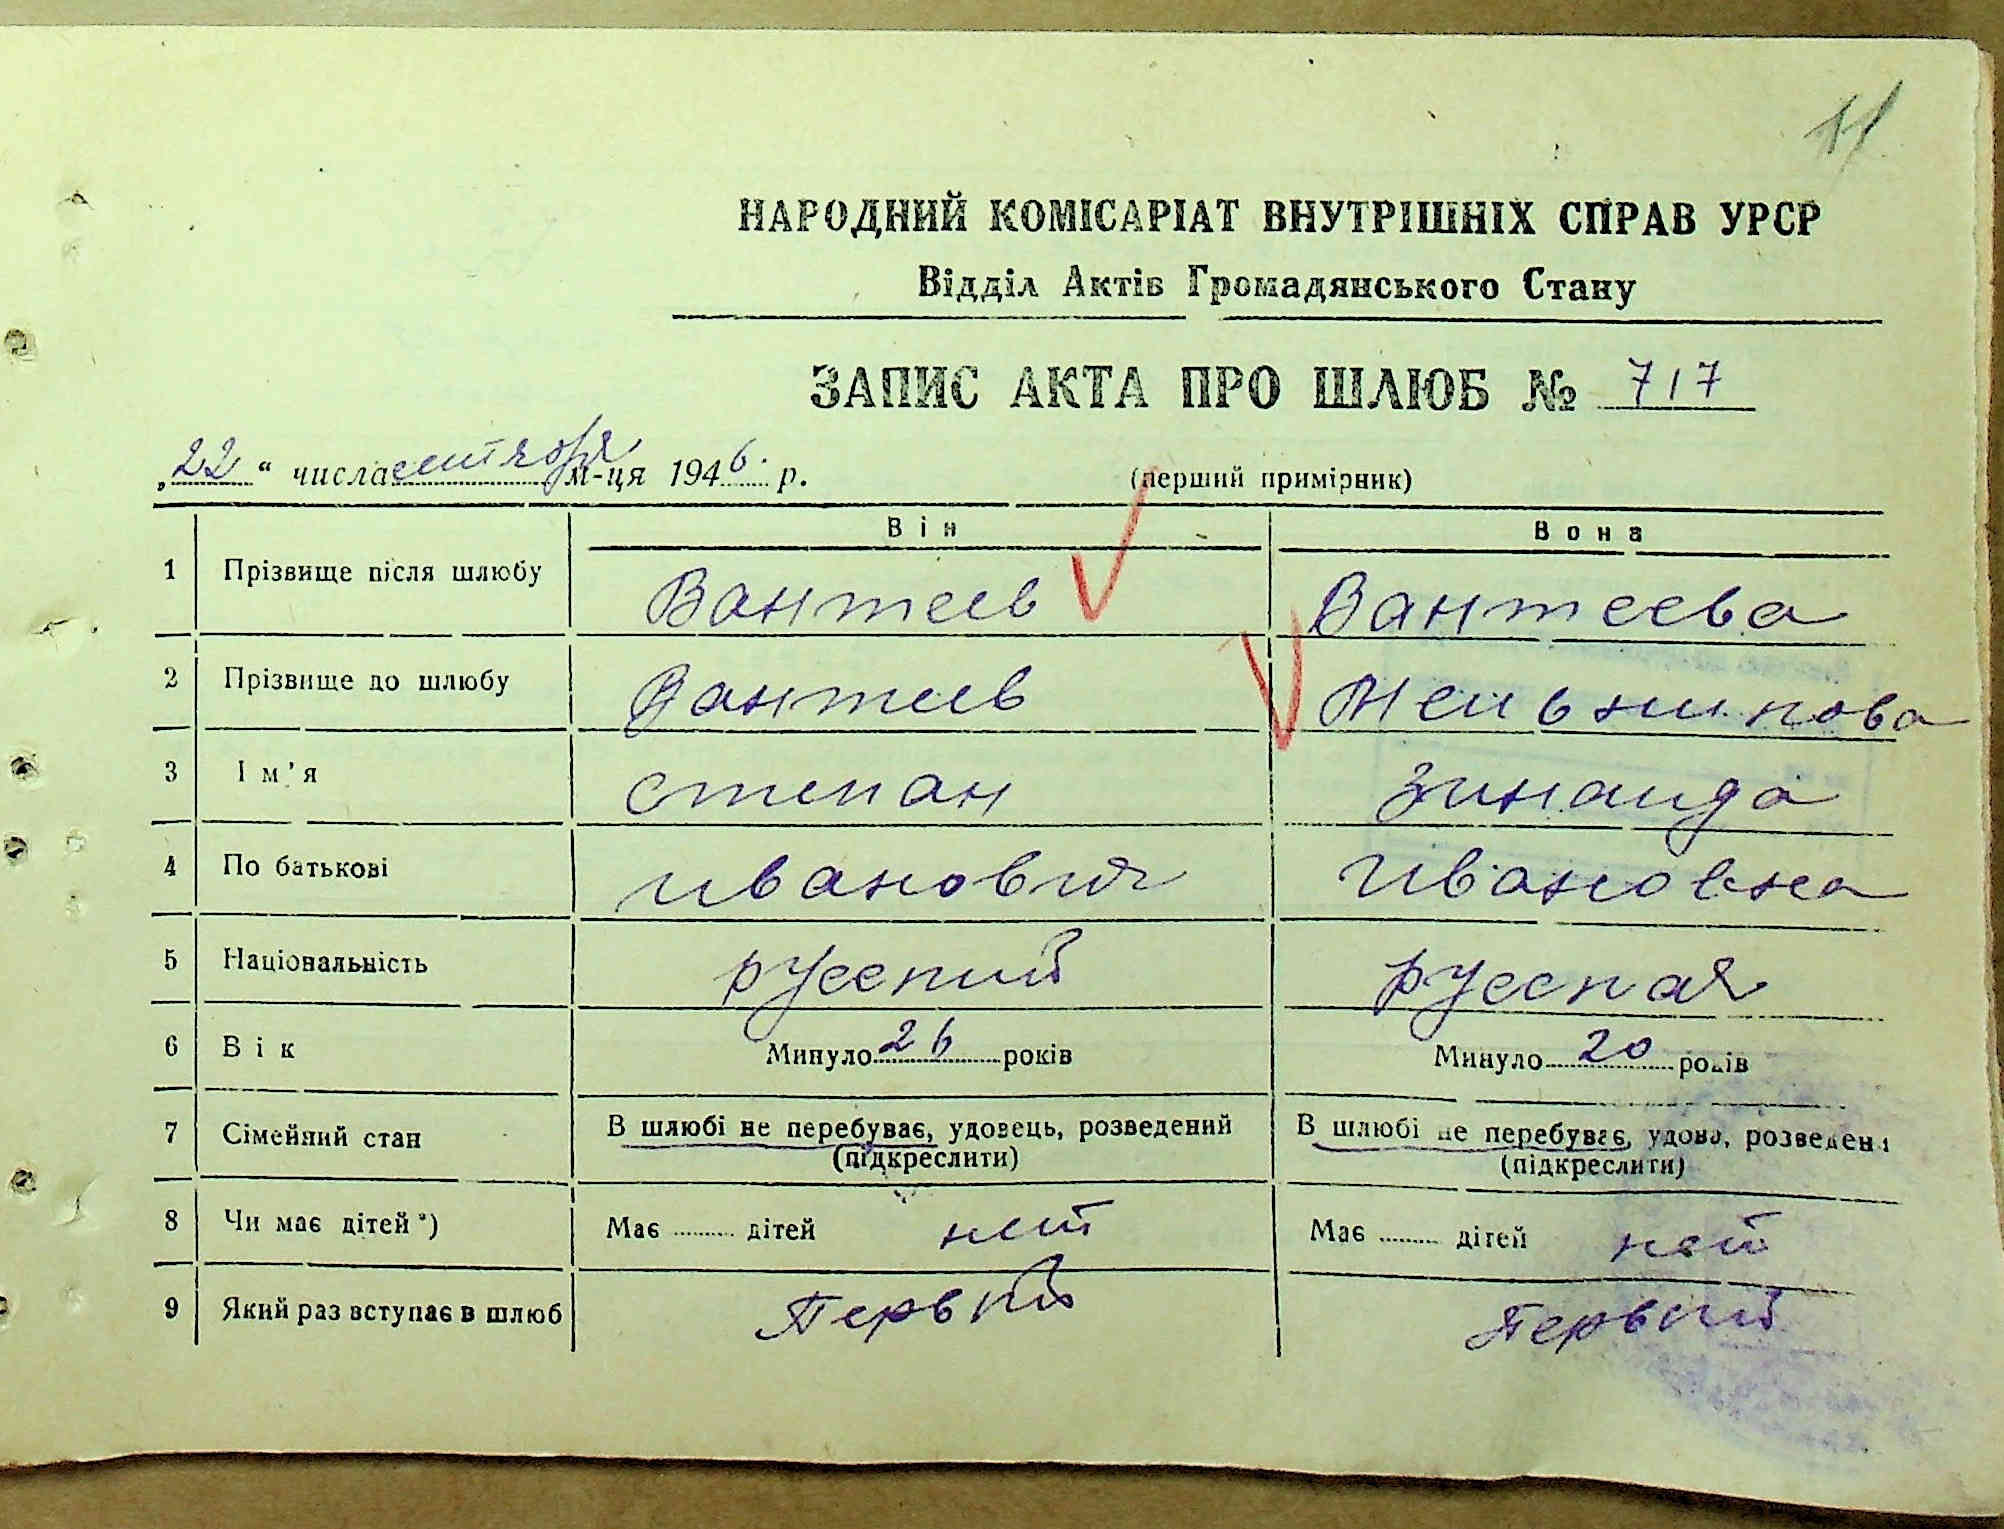 11
НАРОДНИЙ КОМІСАРІАТ ВНУТРІШНІХ СПРАВ УРСР
Відділ Актів Громадянського Стану
ЗАПИС АКТА ПРО ШЛЮБ № 717
„22“ числа сентября м-ця 1946 р. (перший примірник)
Він Вона
1 Прізвище після шлюбу Вантеев Вантеева
2 Прізвище до шлюбу Вантеев Мельникова
3 Ім'я Степан Зинаида
4 По батькові Иванович Ивановна
5 Національність русский русская
6 Вік Минуло 26 років Минуло 20 років
7 Сімейний стан В шлюбі не перебуває, удовець, розведений В шлюбі не перебуває, удова, розведена
(підкреслити) (підкреслити)
8 Чи має дітей *) Має ........ дітей нет Має ........ дітей нет
9 Який раз вступає в шлюб Первый Первый